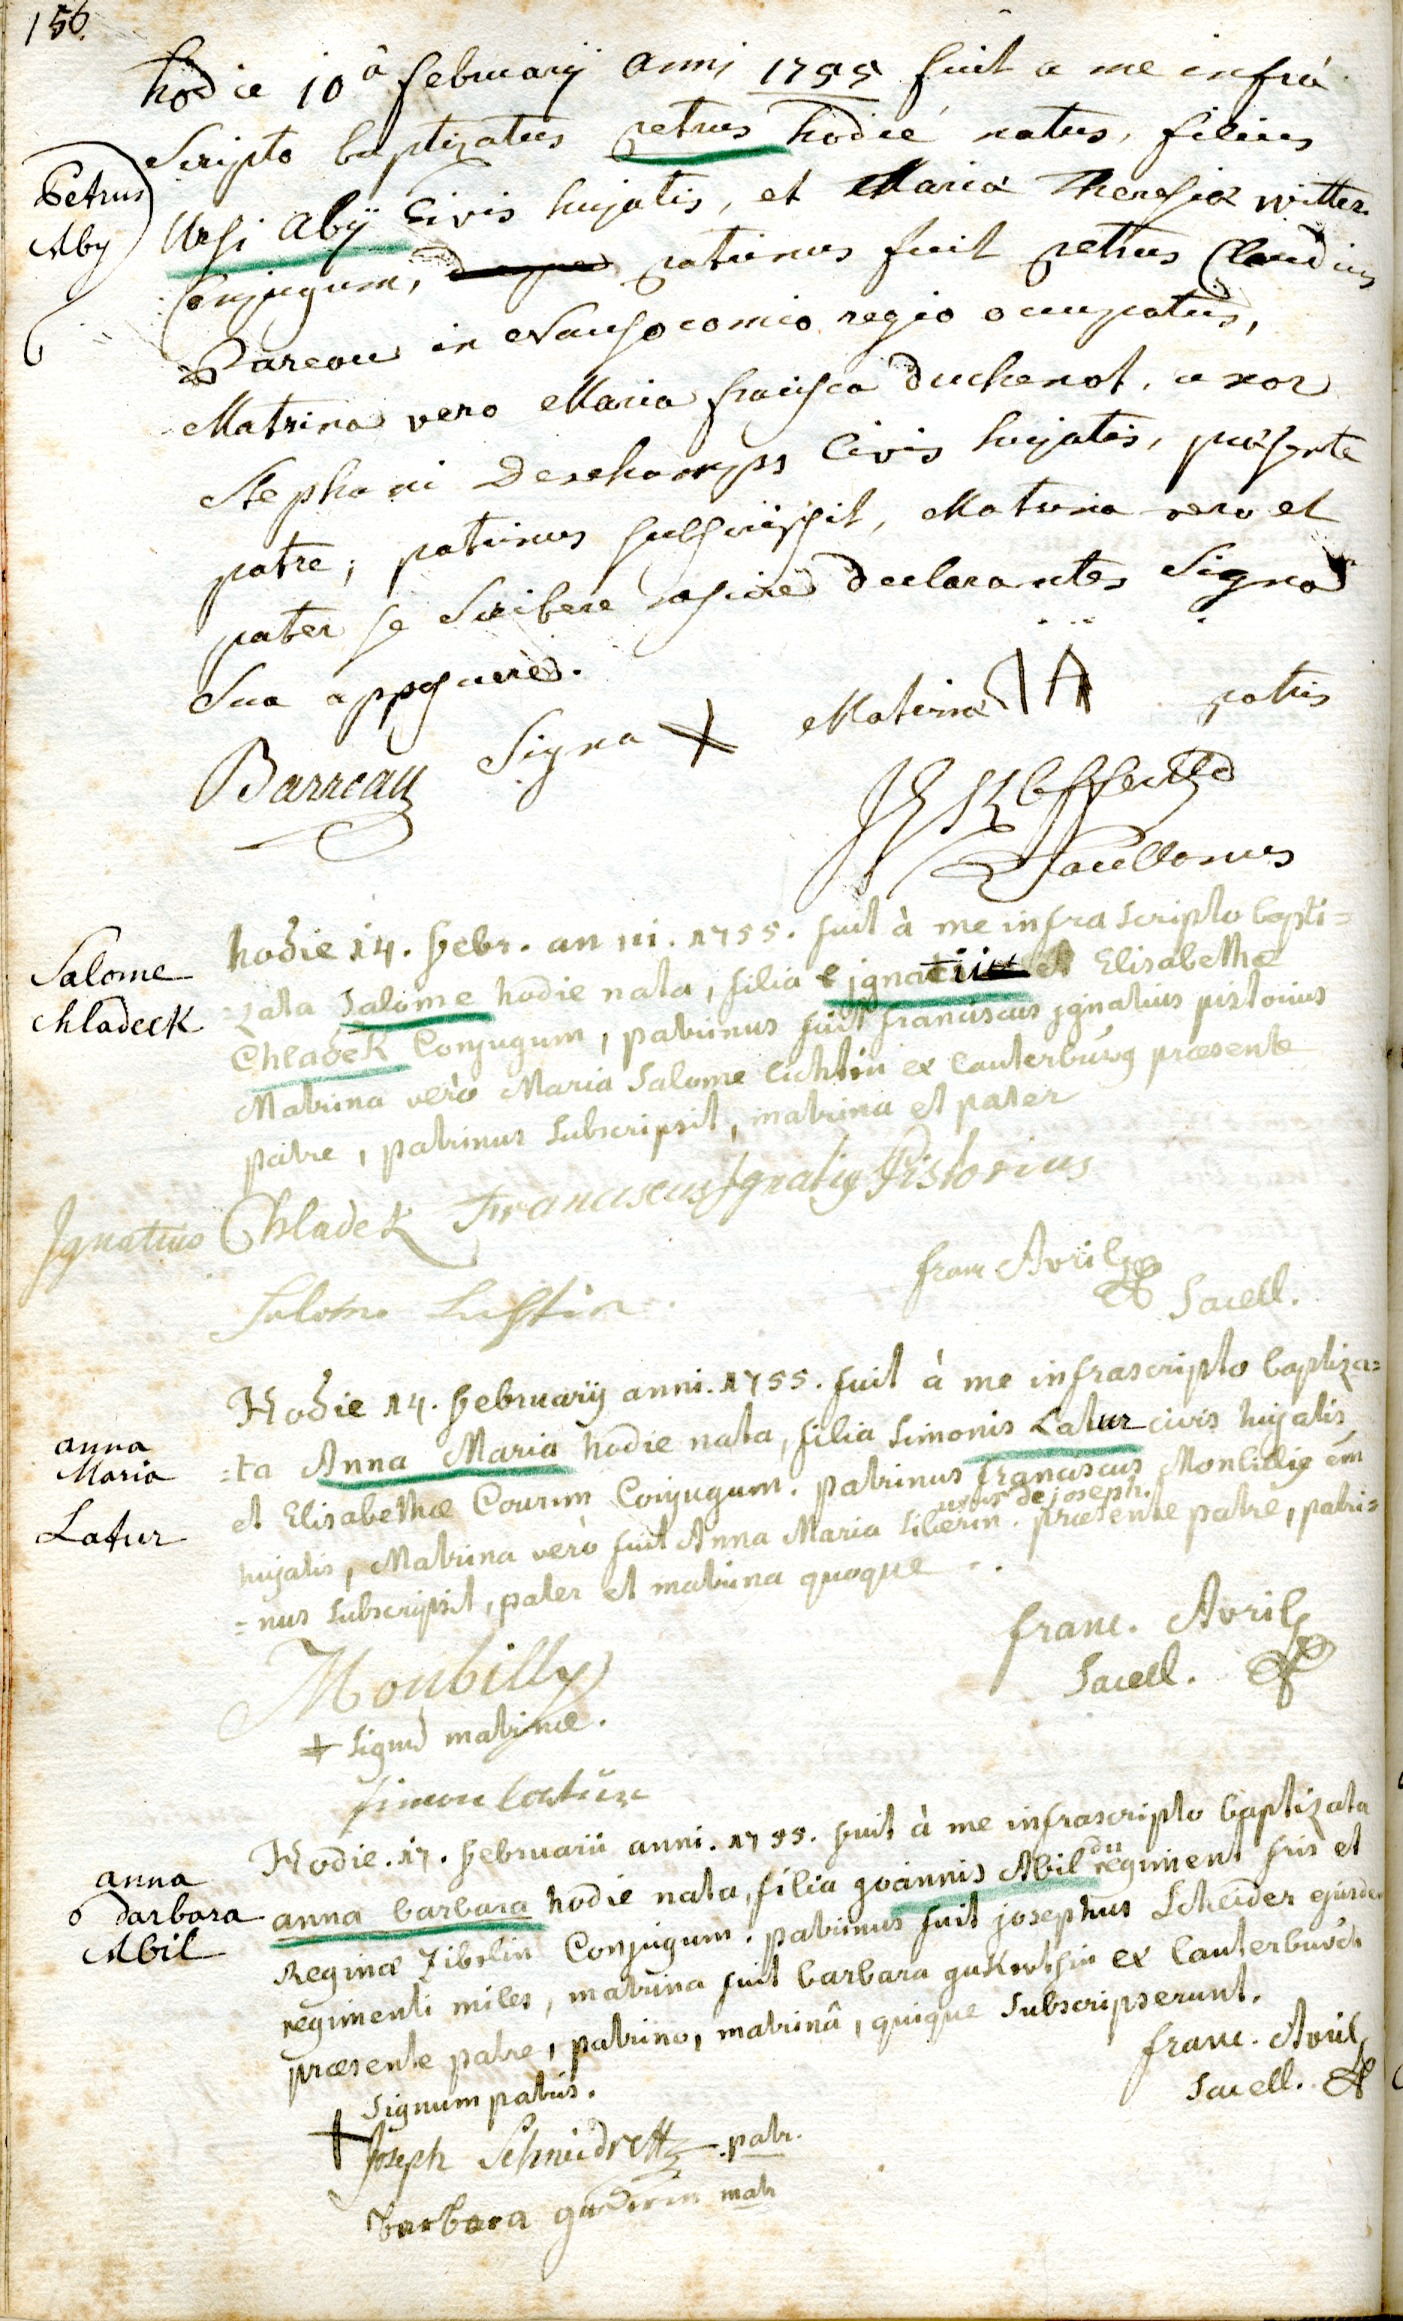 156.
hodie 10â februarij anni 1755 fuit a me infrà
Scripto baptizatus petrus hodie natus, filius
Petrus
Aby
Ursi Abÿ Civis hujatis, et Maria Theresia witter
Conjugum, patrinus fuit petrus Claudius
Bareau in Nausocomio regio occupatus,
Matrina vero Maria francisca duchenot, uxor
Stephani Deschamps Civis hujatis, præsente
patre, patrinus subscripsit, Matrina vero et
pater se scribere nescire declarantes Signa
Sua apposuere.
Barreau Signa X Matrinæ patris
Sacellanus
hodie 14. febr. anni. 1755. fuit à me infra scripto bapti=
Salome
Chladeck
=zata Salome hodie nata, filia ignatii et Elisabethæ
Chladek Conjugum, patrinus fuit franciscus jgnatius pistorius
Matrina verò Maria Salome Lichtin ex Lauterburg præsente
patre, patrinus subscripsit, matrina et pater
Ignatius Chladek Franciscus Ignatius Pistorius
franc Avril
Salome
Sacell.
Hodie 14. februarij anni. 1755. fuit à me infrascripto baptiza=
anna
Maria
Latur
=ta Anna Maria hodie nata, filia Simonis Latur civis hujatis
et Elisabethæ Courim Conjugum. patrinus franciscus Monbilly
uxor de joseph.
hujatis, Matrina verò fuit Anna Maria Siberin. præsente patre, patri=
=nus subscripsit, pater et matrina quoque
franc. Avril
Sacell.
Monbilly
+ Signum matrinæ.
Simon latur
Hodie. 17. februarii anni. 1755. fuit à me infrascripto baptizata
anna
barbara
Abil
anna barbara hodie nata, filia joannis Abil du regiment et
Reginæ Zibelin Conjugum. patrinus fuit josephus Scheider ejusdem
regimenti miles, matrina fuit barbara ex Lauterburch
præsente patre, patrino, matrinâ, quique subscripserunt.
franc. Avril
Sacell.
Signum patris.
+
Joseph patr.
barbara matr